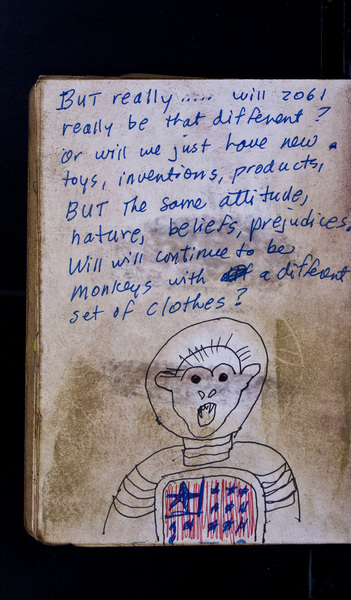 BUT really..... will 2061
really be that different?
or will we just have new
toys, inventions, products,
BUT The same attitude,
nature, beliefs, prejudices.
Will will continue to be
monkeys with a different
set of clothes?